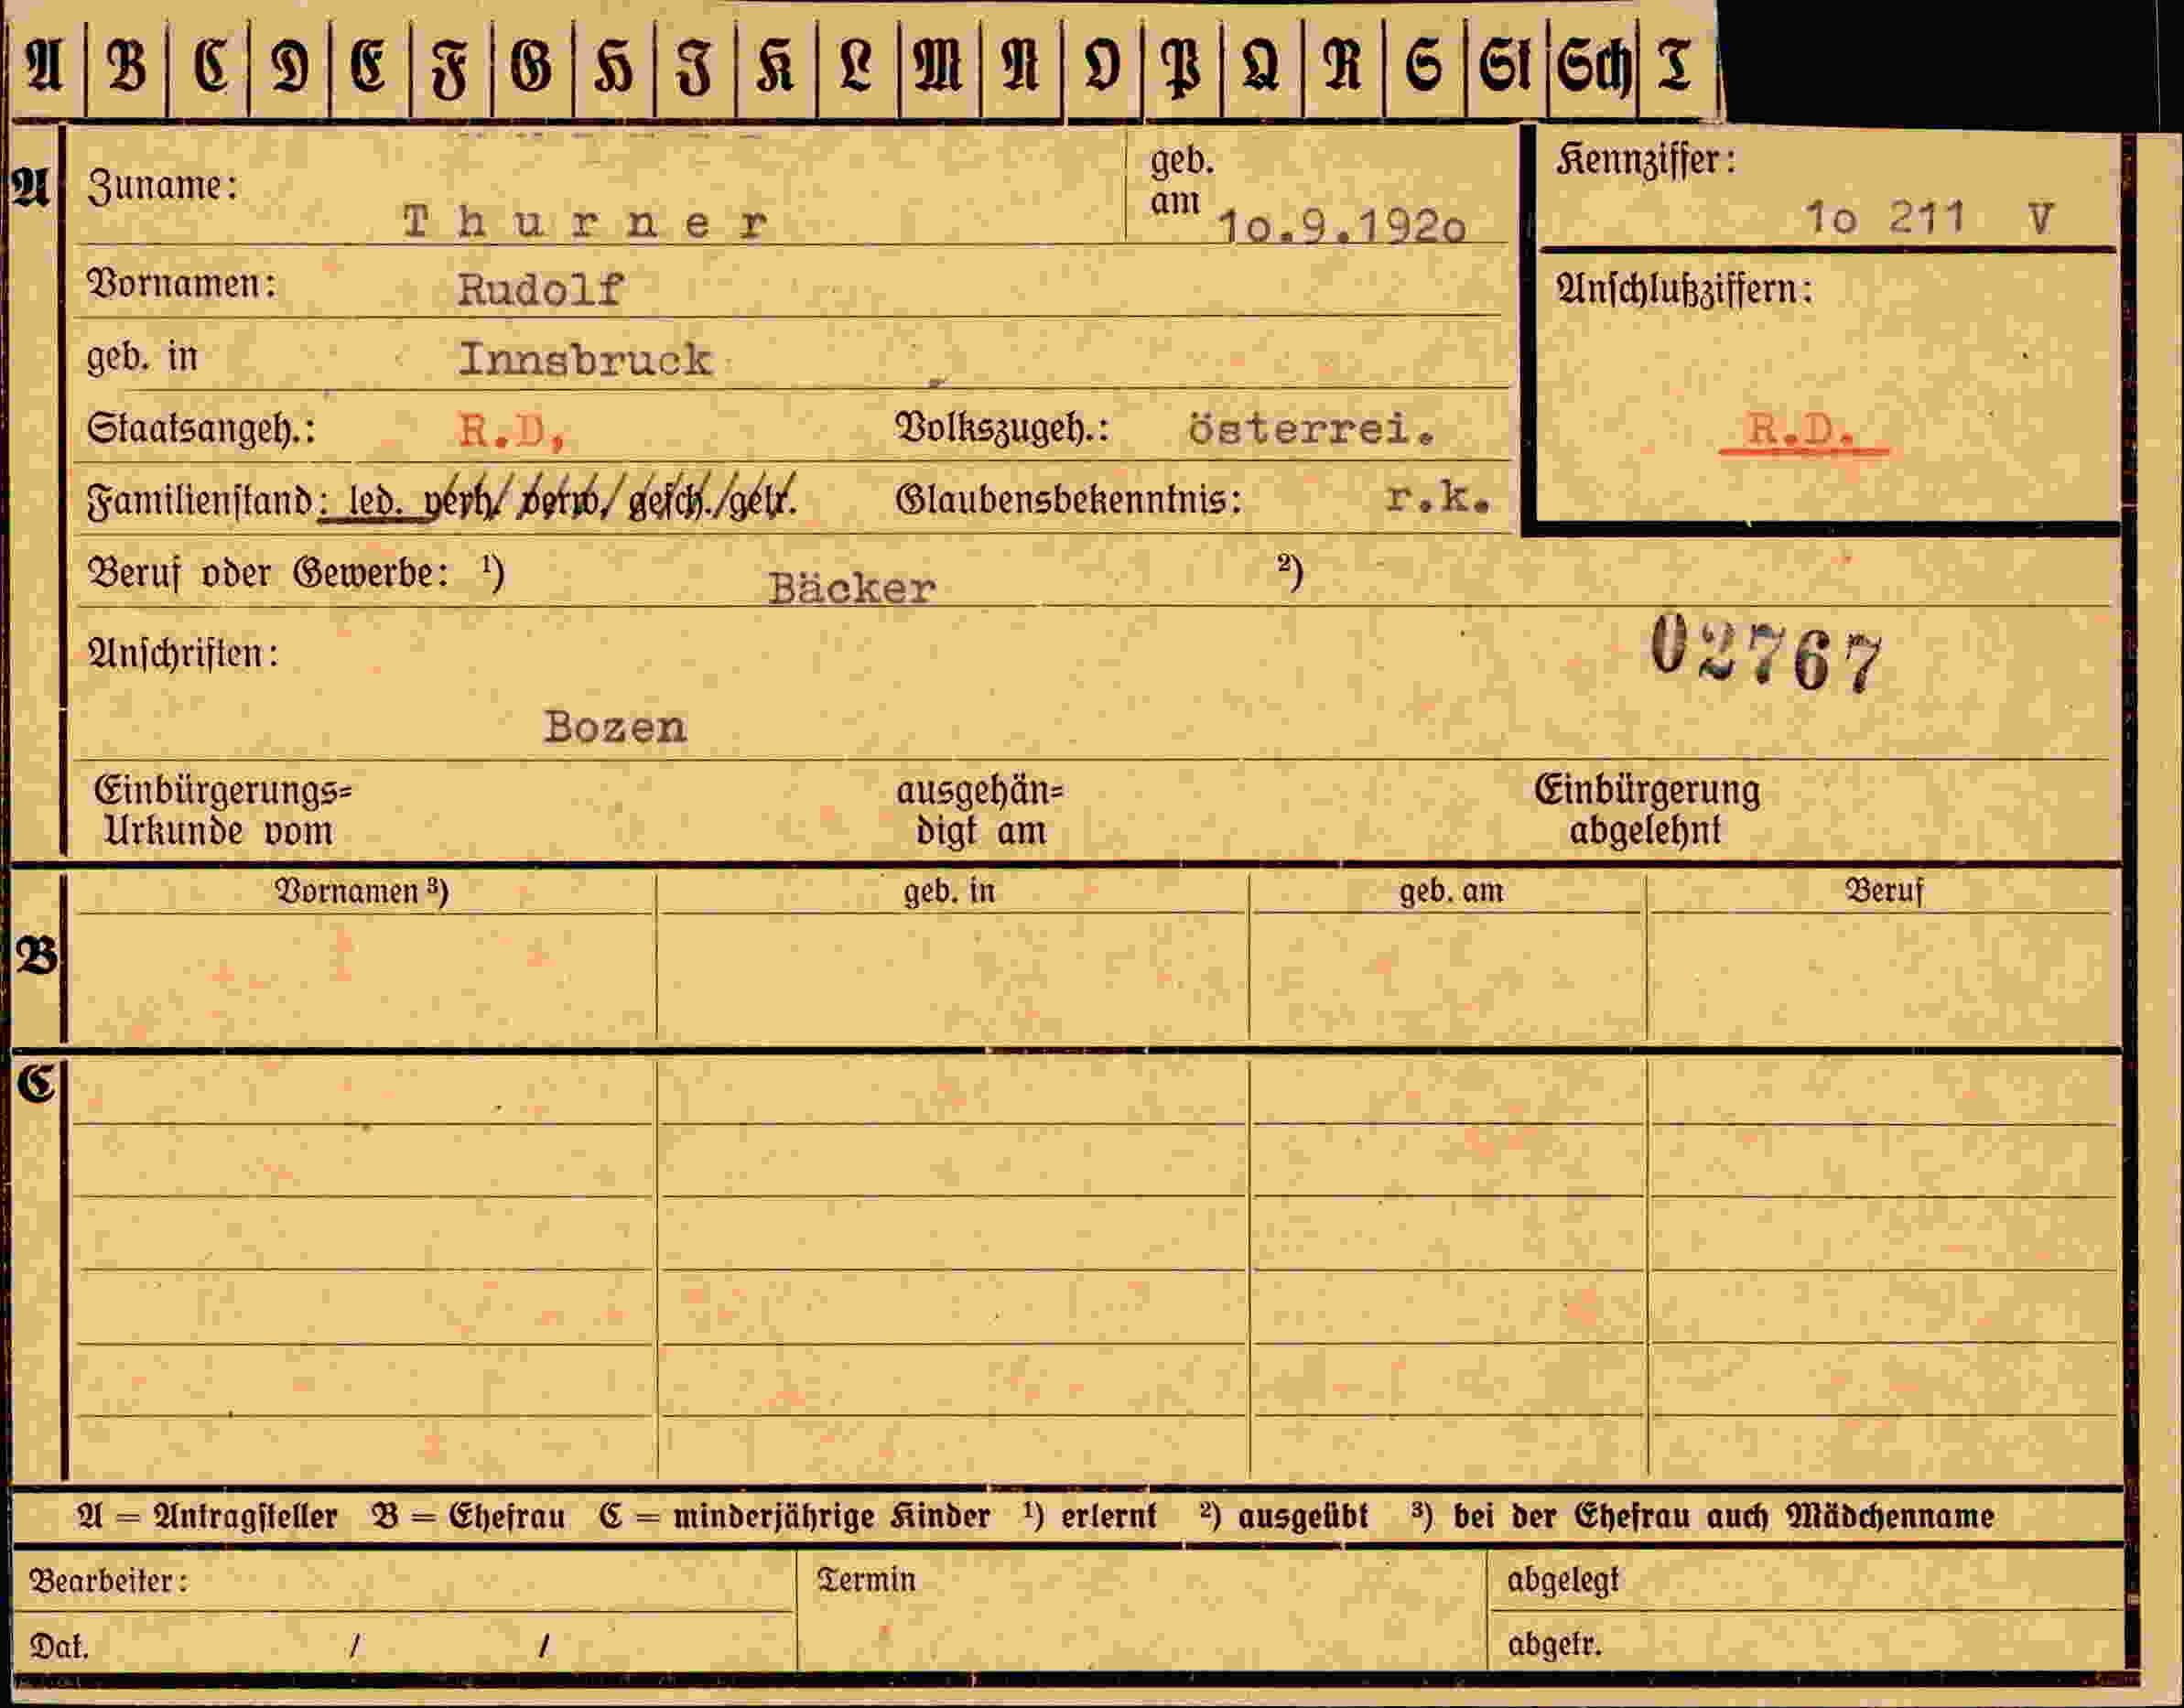 A B C D E F G H I K L M N O P Q R S St Sch T
A Zuname: Thurner geb. am 1o.9.192o Kennziffer: 1o 211 V
Vornamen: Rudolf Anschlußziffern:
geb. in Innsbruck
Staatsangeh.: R.D, Volkszugeh.: österrei. R.D.
Familienstand: led. verh/ verw/ gesch./getr. Glaubensbekenntnis: r.k.
Beruf oder Gewerbe: ¹) Bäcker ²)
Anschriften: 02767
Bozen
Einbürgerungs= ausgehän= Einbürgerung
Urkunde vom digt am abgelehnt
Vornamen ³) geb. in geb. am Beruf
B
C
A = Antragsteller B = Ehefrau C = minderjährige Kinder ¹) erlernt ²) ausgeübt ³) bei der Ehefrau auch Mädchenname
Bearbeiter: Termin abgelegt
Dat. / / abgetr.